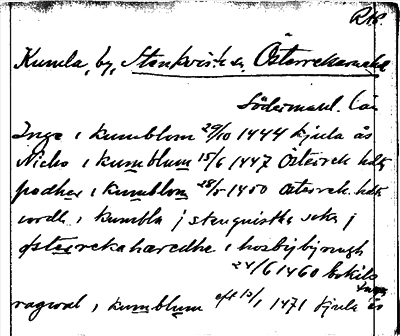 RAP.
Kumla, by, Stenkvista sn, Österrekarne hd
Södermanl. län
Inge i kumblom 29/10 1444 kjula ås
Nicho i kumblum 15/6 1447 Österrek hds
podher i kumblom 28/5 1450 Österrek. hds
ordh. i kumbla j stenquistha sokn j
østrrekahæredhe i hosbýbýrungh
24/6 1460 bokils
ragwal, i kumblum eft 13/1 1471 kjula ås